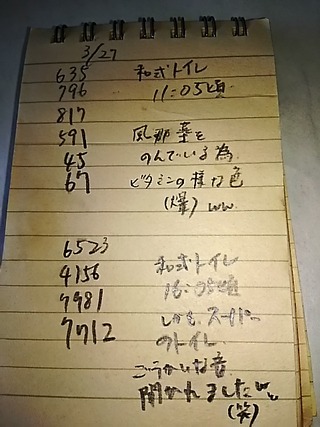 3/27
635 和式トイレ
796 11:05頃
817
591 風邪薬を
45 のんでいる為
67 ビタミンの様な色
(爆) ww
6523
4156 和式トイレ
7981 16:05頃
7712 しかも、スーパー
のトイレ
ごうかいな音
聞かれましたw
(笑)